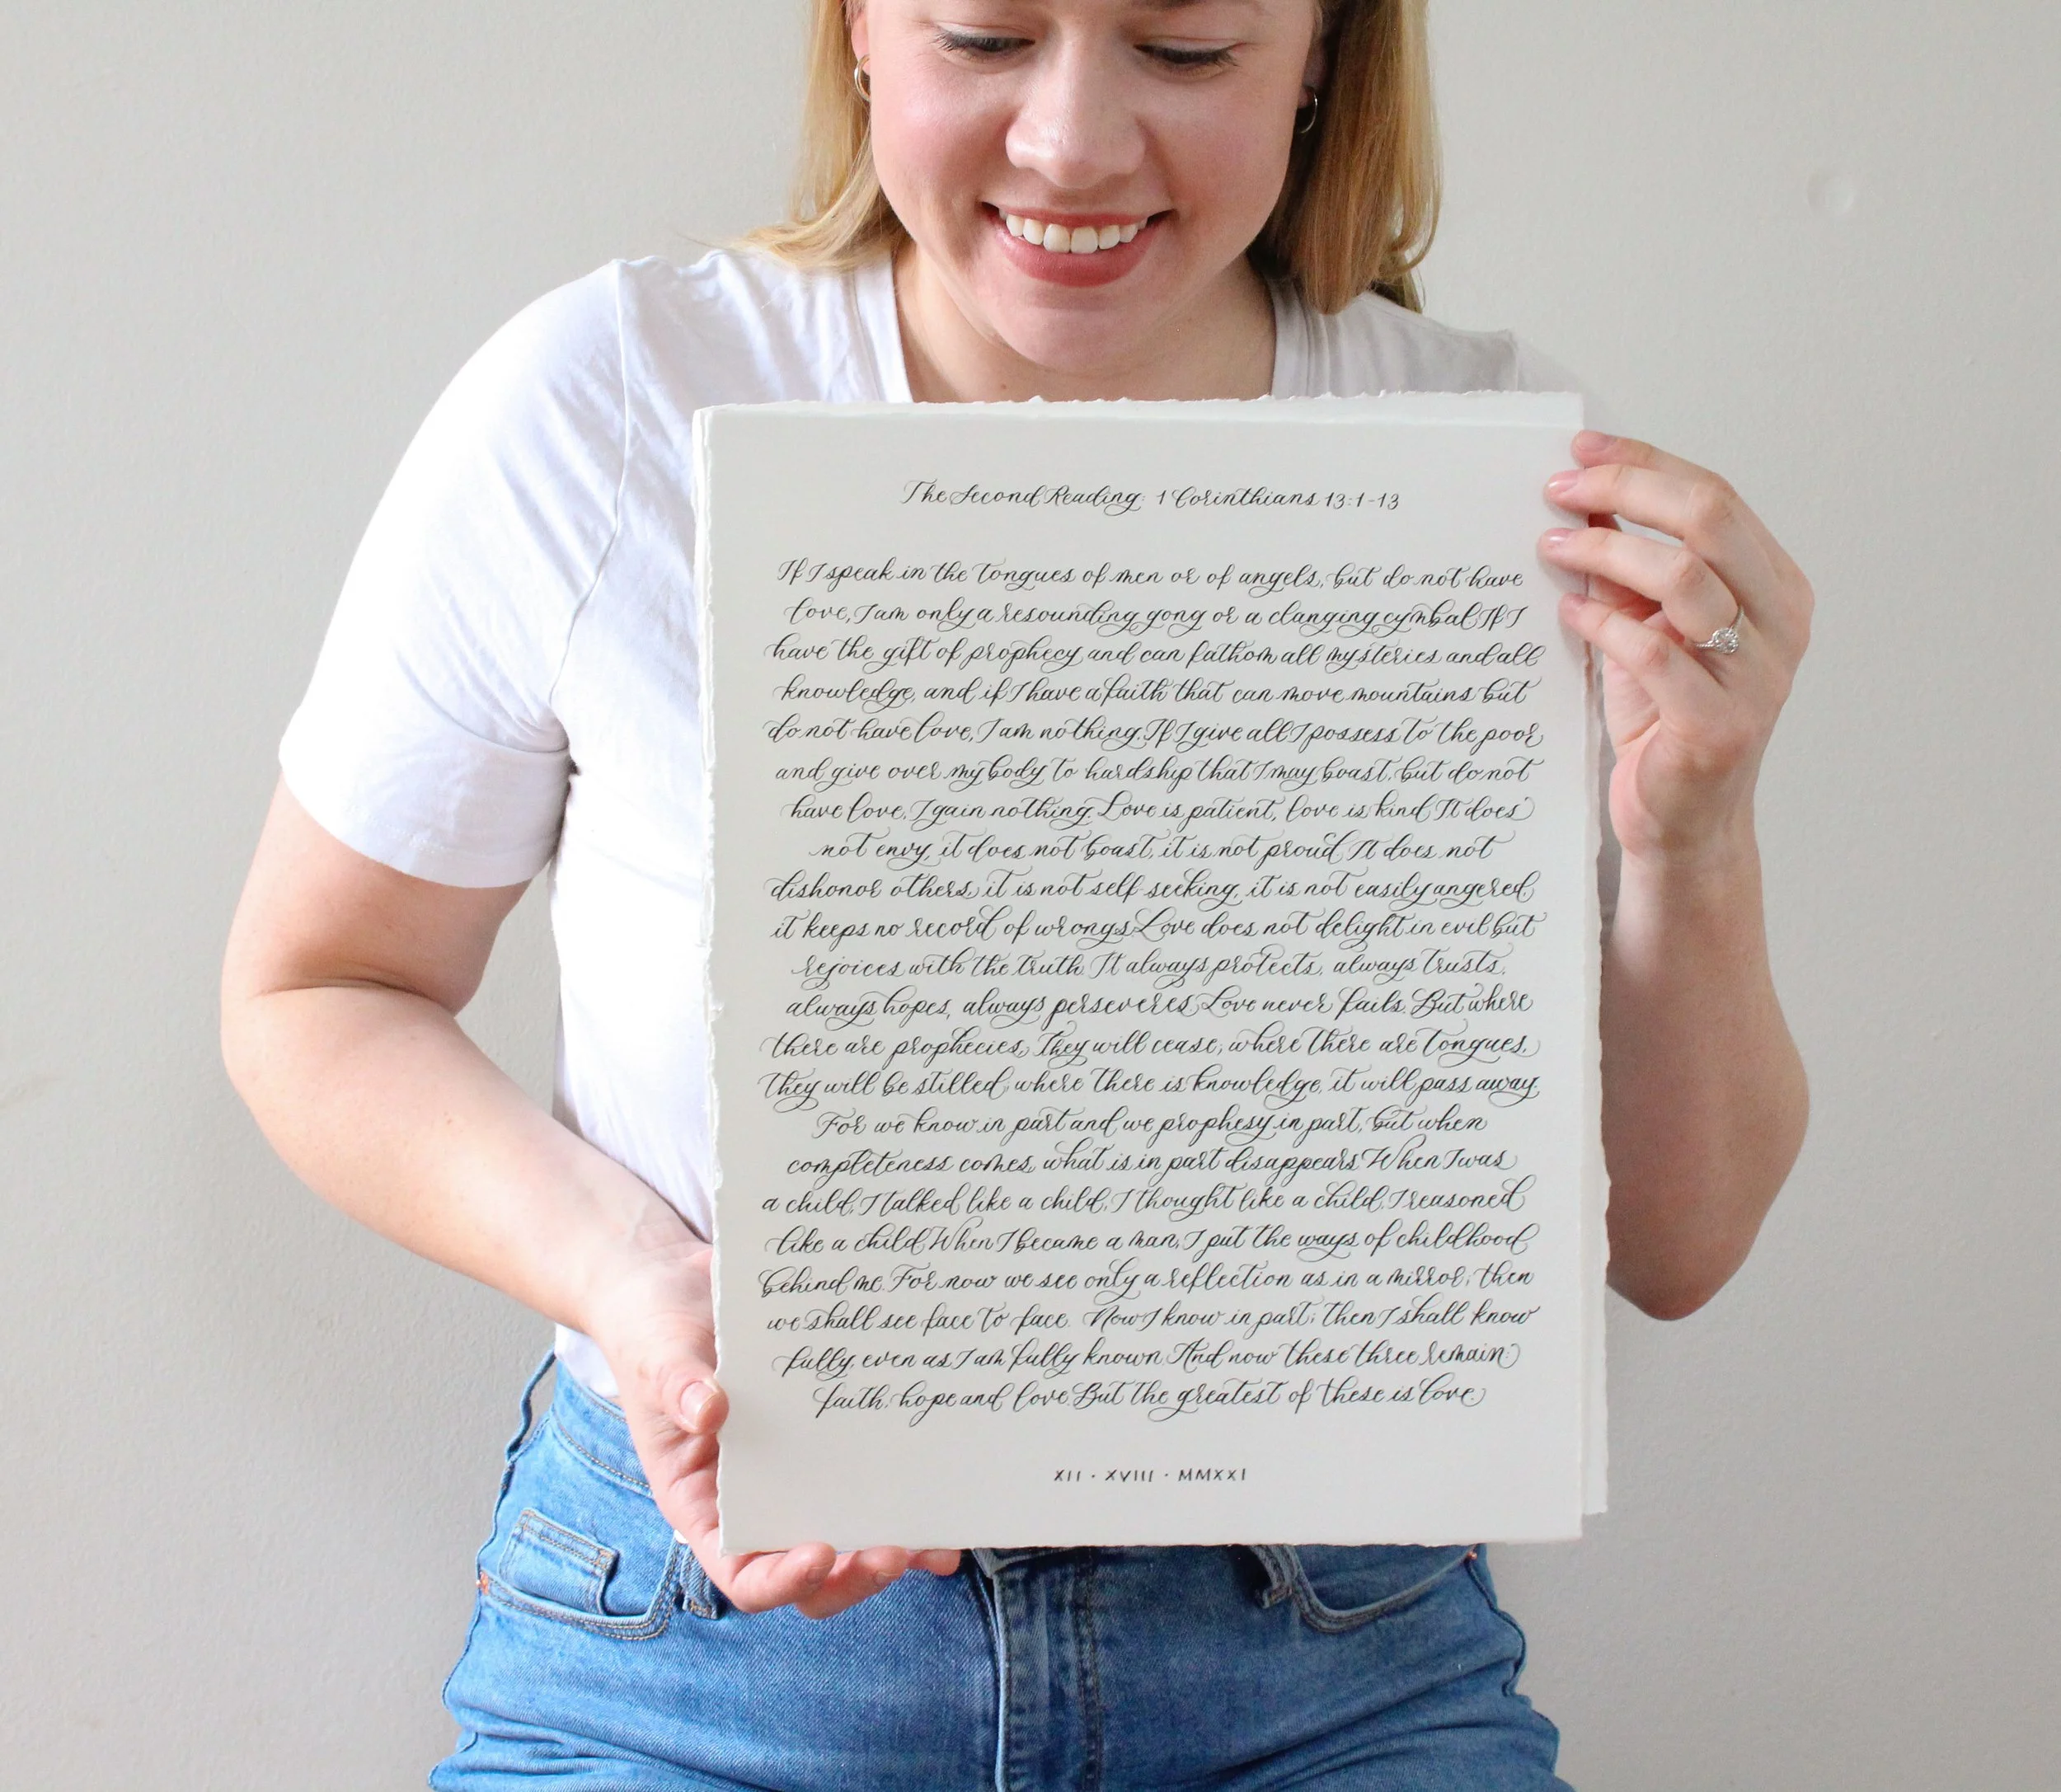 The Second Reading: 1 Corinthians 13:1-13
If I speak in the tongues of men or of angels, but do not have
love, I am only a resounding gong or a clanging cymbal. If I
have the gift of prophecy and can fathom all mysteries and all
knowledge, and if I have a faith that can move mountains but
do not have love, I am nothing. If I give all I possess to the poor
and give over my body to hardship that I may boast, but do not
have love, I gain nothing. Love is patient, love is kind. It does
not envy, it does not boast, it is not proud. It does not
dishonor others, it is not self-seeking, it is not easily angered,
it keeps no record of wrongs. Love does not delight in evil but
rejoices with the truth. It always protects, always trusts,
always hopes, always perseveres. Love never fails. But where
there are prophecies, they will cease; where there are tongues,
they will be stilled; where there is knowledge, it will pass away.
For we know in part and we prophesy in part, but when
completeness comes, what is in part disappears. When I was
a child, I talked like a child, I thought like a child, I reasoned
like a child. When I became a man, I put the ways of childhood
behind me. For now we see only a reflection as in a mirror; then
we shall see face to face. Now I know in part; then I shall know
fully, even as I am fully known. And now these three remain:
faith, hope and love. But the greatest of these is love.
XII · XVIII · MMXXI